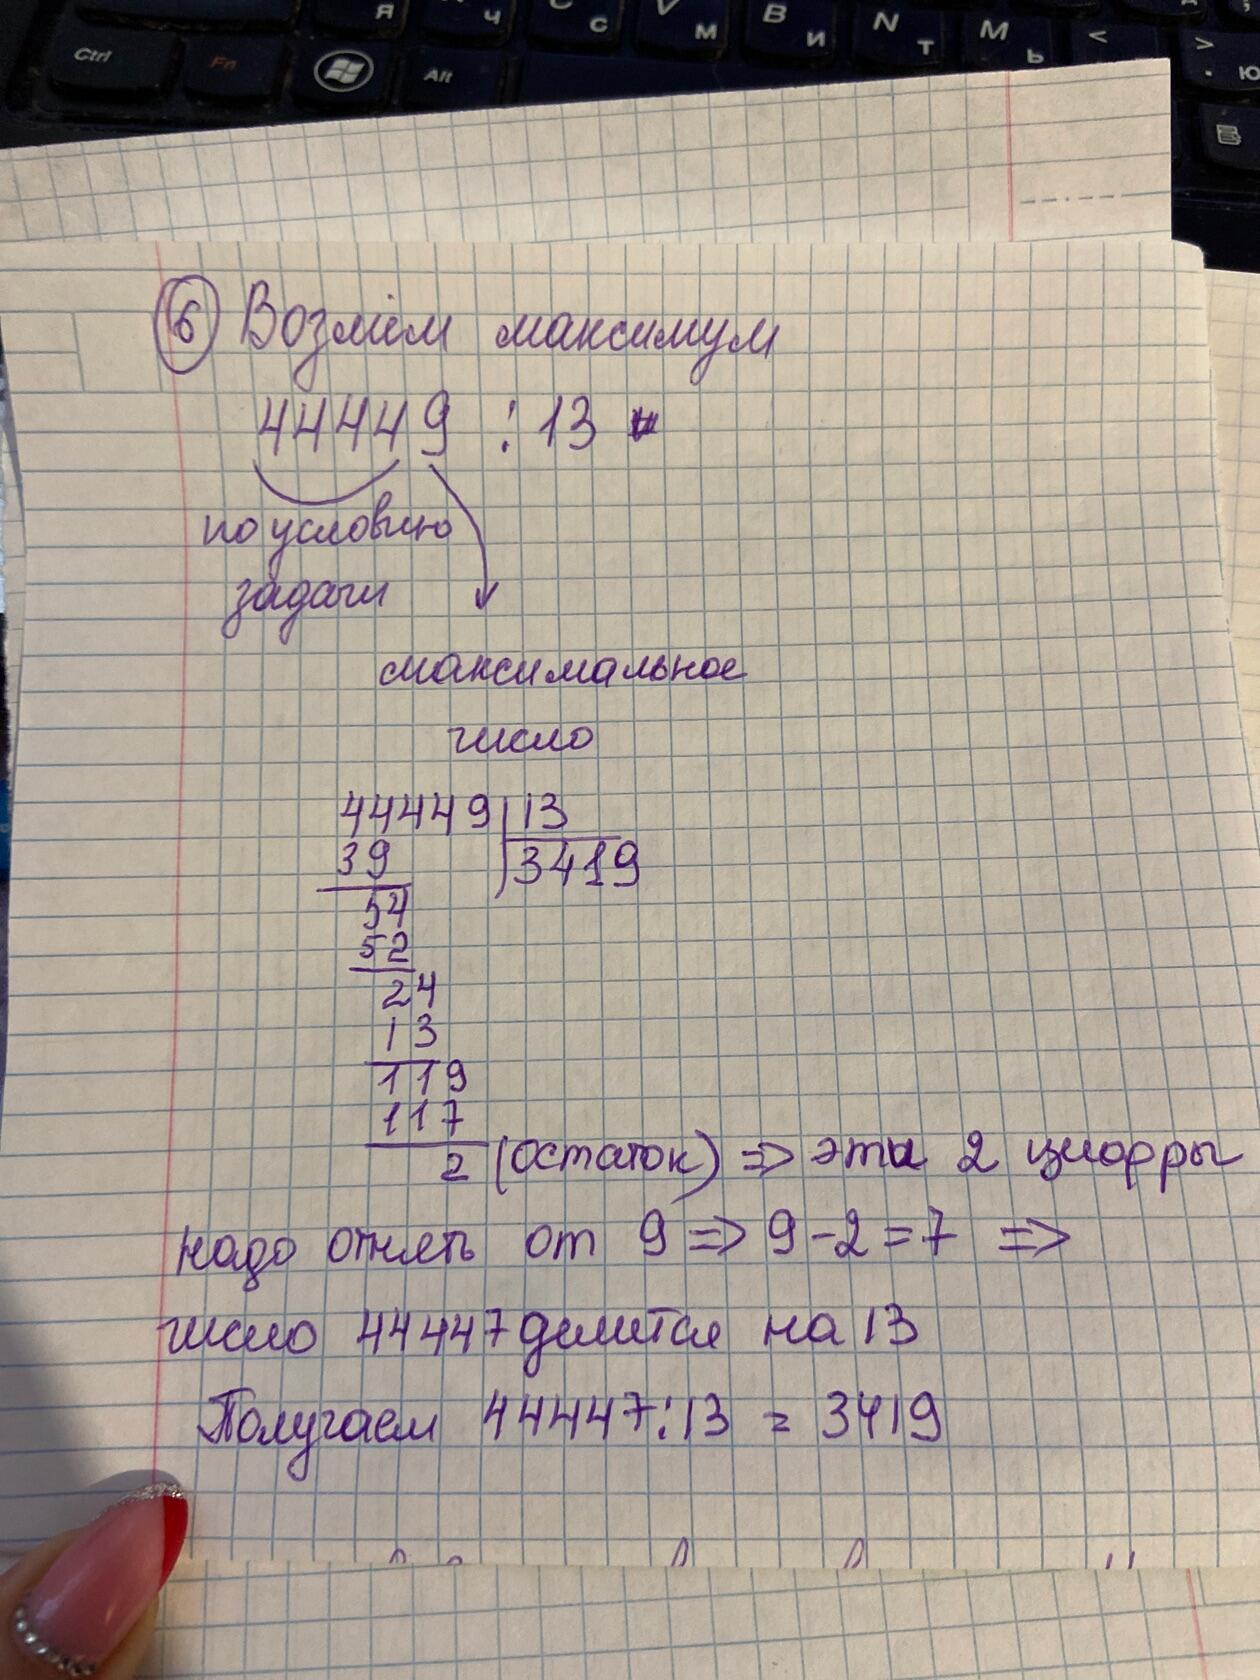 Я
Ч
С
С
V
М
В
И
N
Т
М
Ь
<
>
.
Ю
Ctrl
Fn
Alt
6 Возмём максимум
44449 : 13
по условию
задачи
максимальное
число
44449 13
39 3419
54
52
24
13
119
117
2 (остаток) => эти 2 цифры
надо отнять от 9 => 9-2=7 =>
число 44447 делится на 13
Получаем 44447:13 = 3419